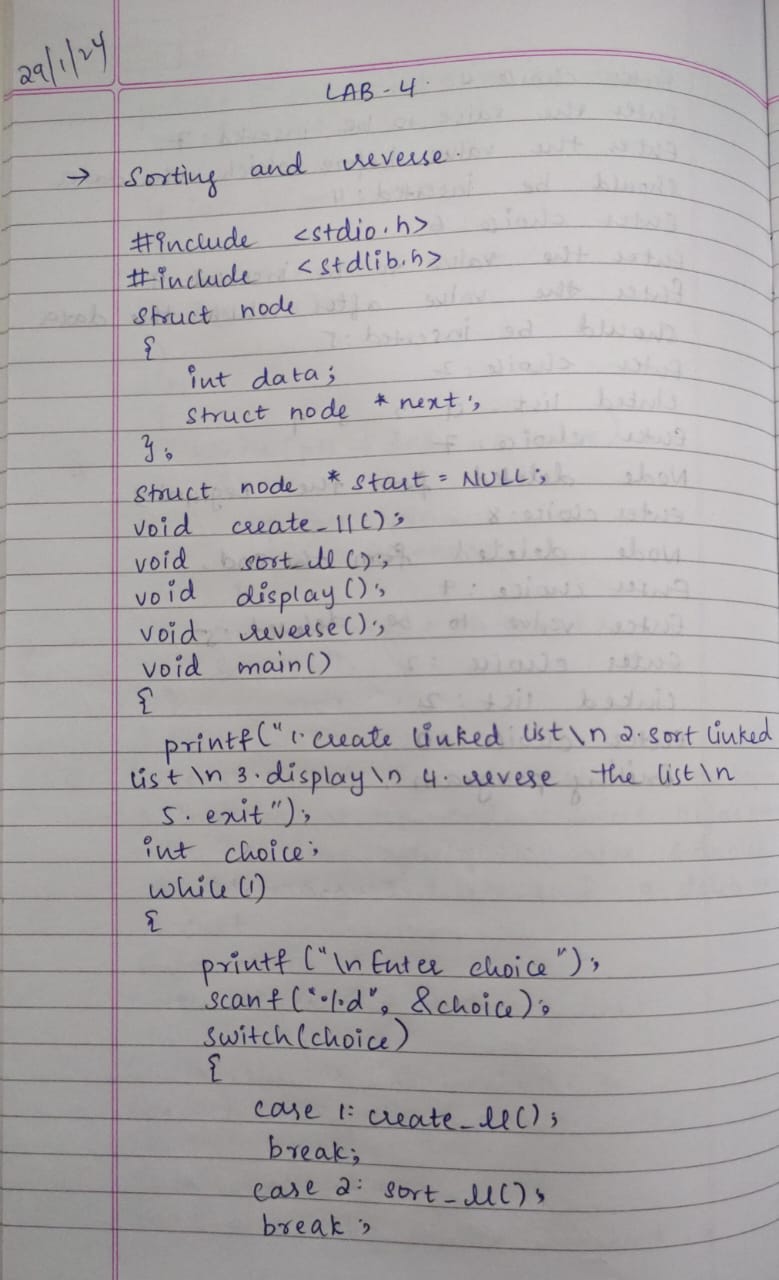 29/1/24
LAB-4.
→ Sorting and reverse.
#include <stdio.h>
#include <stdlib.h>
struct node
{
int data;
struct node *next;
};
struct node *start = NULL;
void create_ll();
void sort_ll();
void display();
void reverse();
void main()
{
printf("1.create linked list\n 2.sort linked
list\n 3.display\n 4.revese the list\n
5.exit");
int choice;
while(1)
{
printf("\nEnter choice");
scanf("%d", &choice);
switch(choice)
{
case 1: create_ll();
break;
case 2: sort_ll();
break;